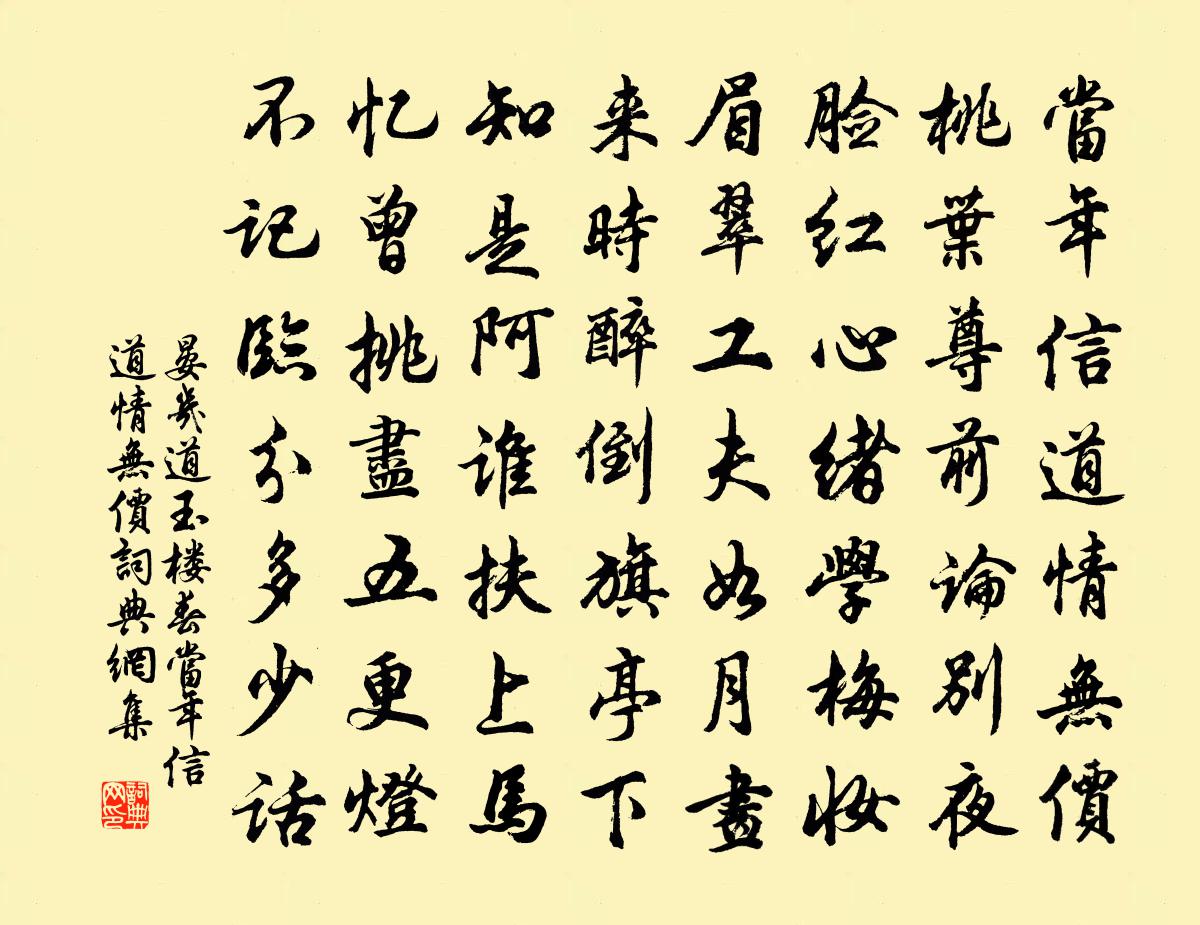 當年信道情無價
桃葉尊前論別夜
脸红心緒學梅妝
眉翠工夫如月畫
来時醉倒旗亭下
知是阿誰扶上馬
忆曾挑盡五更燈
不记臨分多少话
晏幾道玉楼春當年信
道情無價詞典網集
詞典
网印